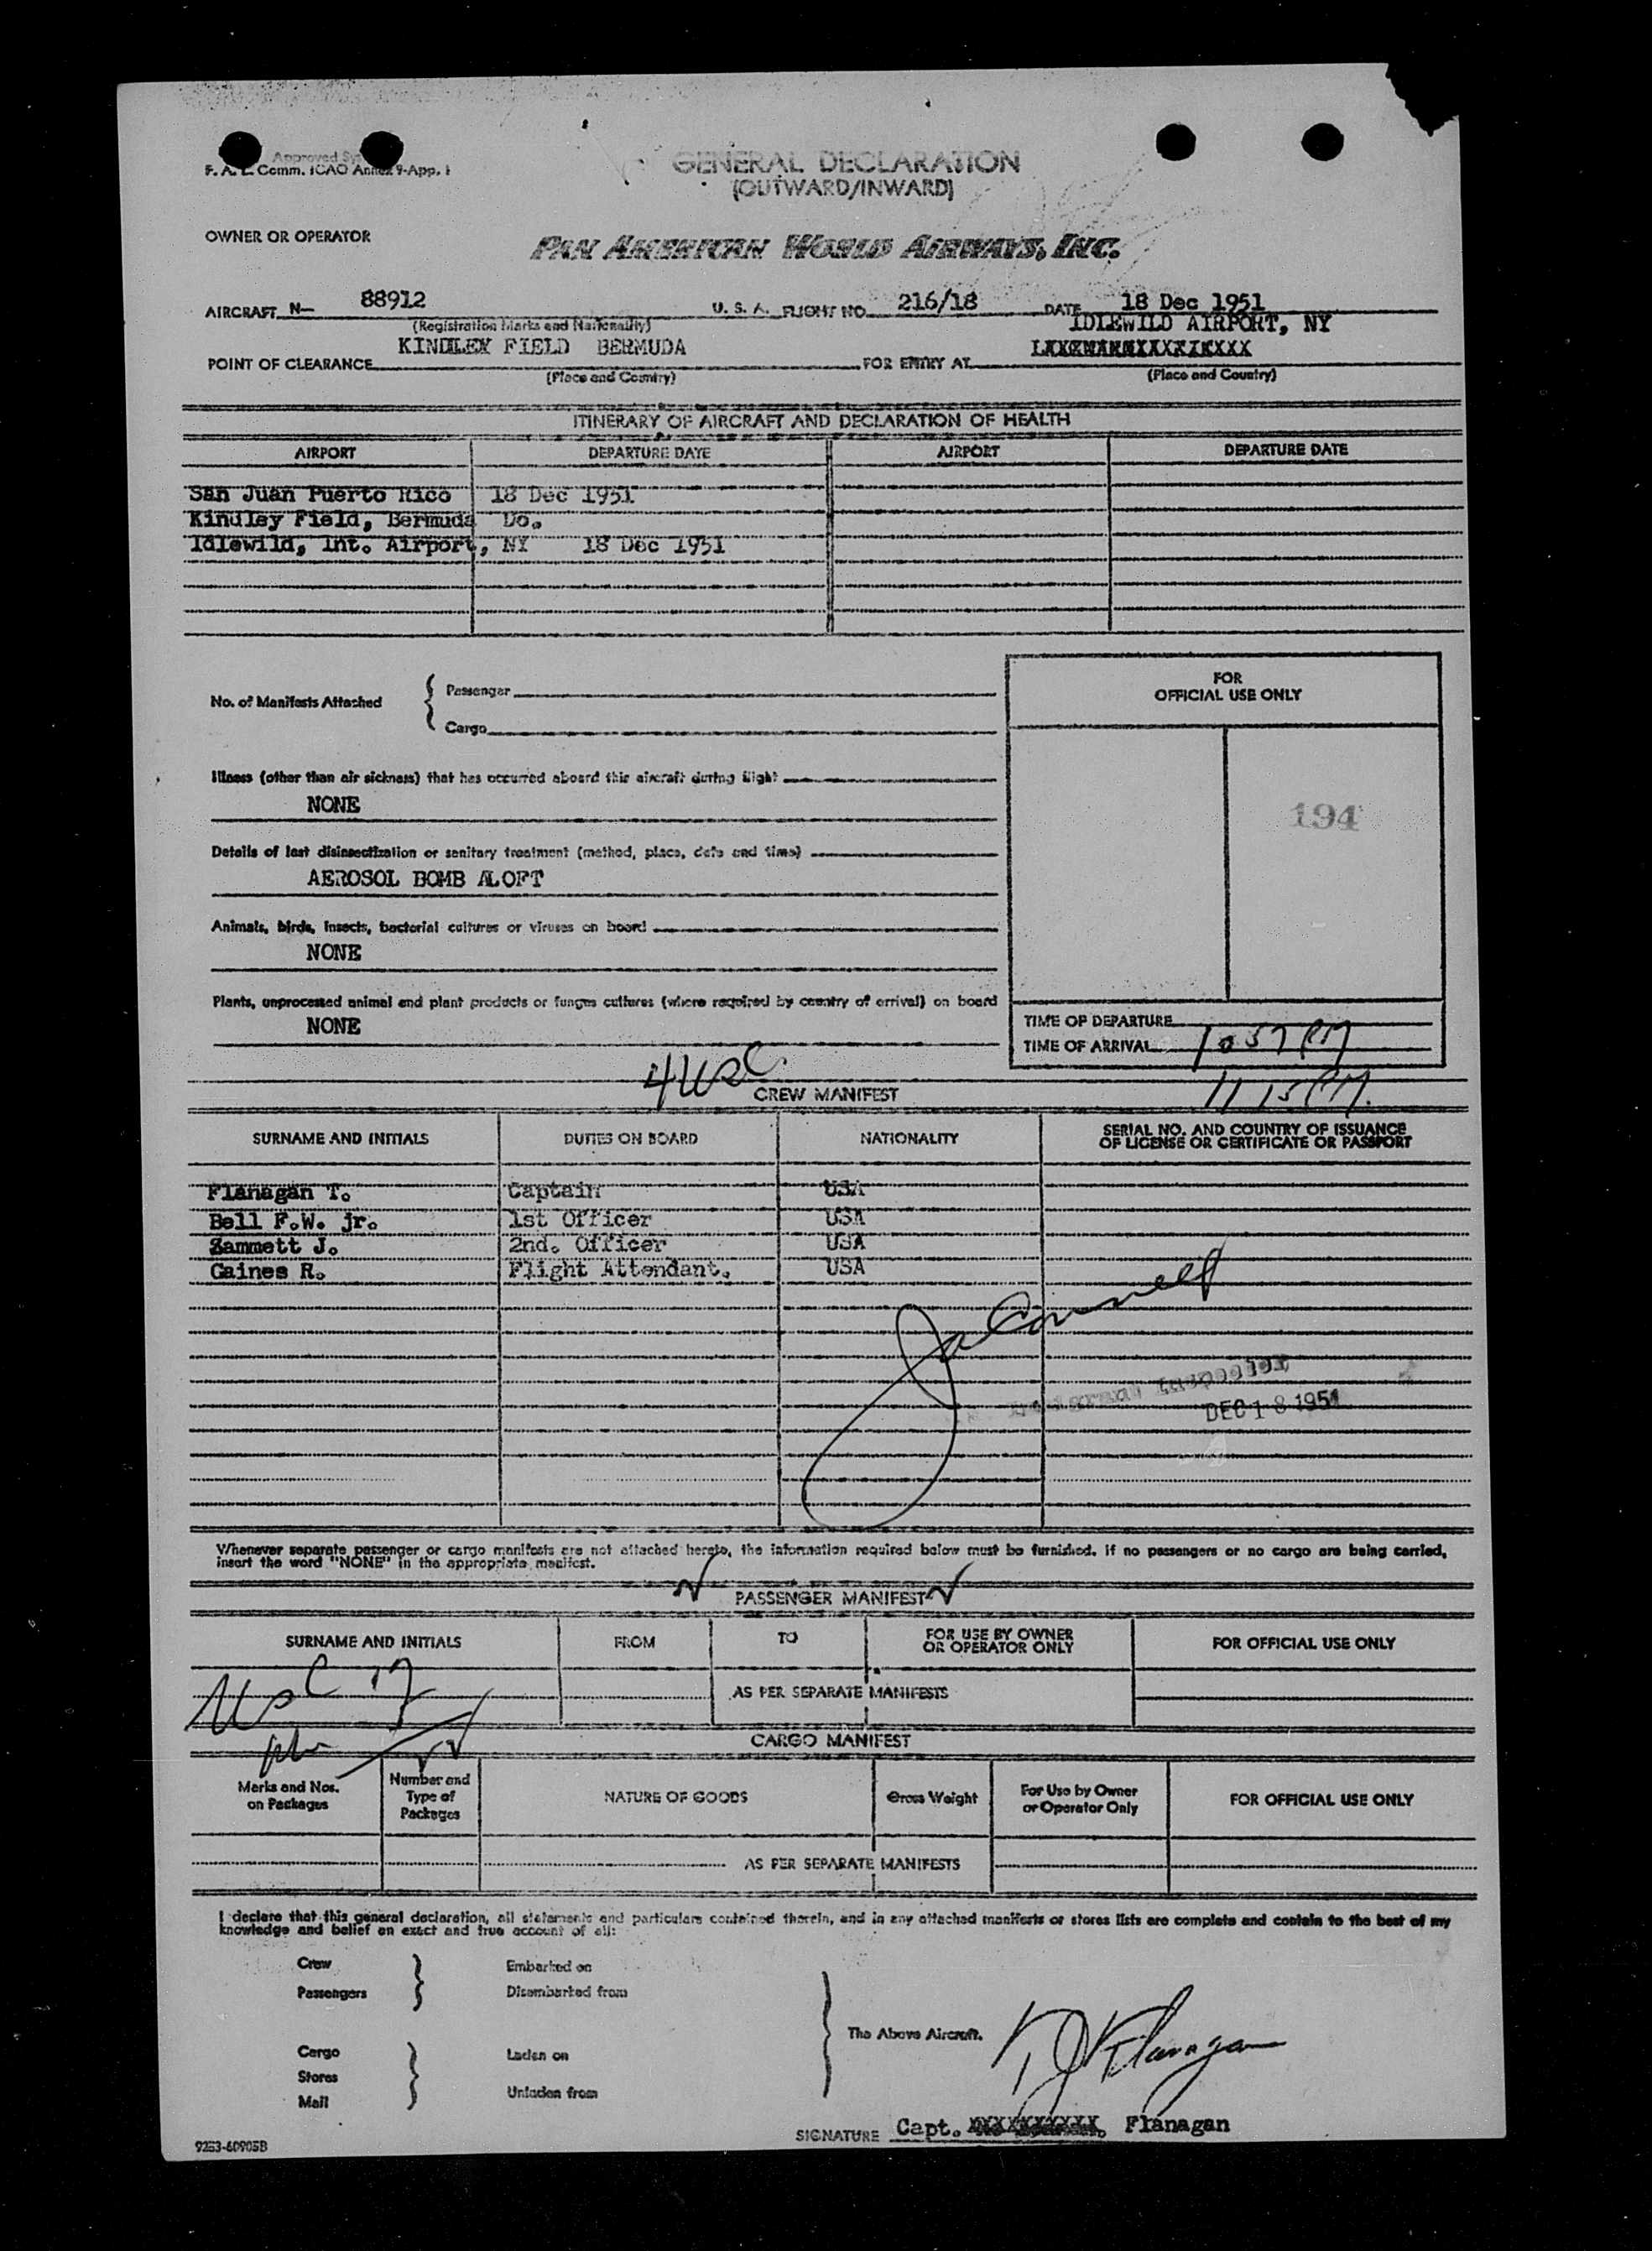 Approved Sys
F. A. L. Comm. ICAO Annex 9-App. I
GENERAL DECLARATION
(OUTWARD/INWARD)
OWNER OR OPERATOR
PAN AMERICAN WORLD AIRWAYS, INC.
AIRCRAFT N— 88912 U. S. A. FLIGHT NO. 216/18 DATE 18 Dec 1951
(Registration Marks and Nationality)
IDLEWILD AIRPORT, NY
POINT OF CLEARANCE KINDLEY FIELD BERMUDA FOR ENTRY AT
(Place and Country) (Place and Country)
ITINERARY OF AIRCRAFT AND DECLARATION OF HEALTH
AIRPORT DEPARTURE DATE AIRPORT DEPARTURE DATE
San Juan Puerto Rico 18 Dec 1951
Kindley Field, Bermuda Do.
Idlewild, Int. Airport, NY 18 Dec 1951
No. of Manifests Attached { Passenger
Cargo
FOR
OFFICIAL USE ONLY
194
Illness (other than air sickness) that has occurred aboard this aircraft during flight
NONE
Details of last disinsectization or sanitary treatment (method, place, date and time)
AEROSOL BOMB ALOFT
Animals, birds, insects, bacterial cultures or viruses on board
NONE
Plants, unprocessed animal and plant products or fungus cultures (where required by country of arrival) on board
NONE
TIME OF DEPARTURE
TIME OF ARRIVAL 1057 PM
11 15 PM.
4 USC
CREW MANIFEST
SURNAME AND INITIALS DUTIES ON BOARD NATIONALITY SERIAL NO. AND COUNTRY OF ISSUANCE
OF LICENSE OR CERTIFICATE OR PASSPORT
Flanagan T. Captain USA
Bell F.W. jr. 1st Officer USA
Sammett J. 2nd. Officer USA
Gaines R. Flight Attendant. USA
Immigrant Inspector
DEC 18 1951
Whenever separate passenger or cargo manifests are not attached hereto, the information required below must be furnished. If no passengers or no cargo are being carried,
insert the word "NONE" in the appropriate manifest.
PASSENGER MANIFEST
SURNAME AND INITIALS FROM TO FOR USE BY OWNER
OR OPERATOR ONLY FOR OFFICIAL USE ONLY
USC 17
AS PER SEPARATE MANIFESTS
CARGO MANIFEST
Marks and Nos.
on Packages
Number and
Type of
Packages
NATURE OF GOODS
Gross Weight
For Use by Owner
or Operator Only
FOR OFFICIAL USE ONLY
AS PER SEPARATE MANIFESTS
I declare that this general declaration, all statements and particulars contained therein, and in any attached manifests or stores lists are complete and contain to the best of my
knowledge and belief an exact and true account of all:
Crew Embarked on
Passengers Disembarked from
The Above Aircraft.
Cargo Laden on
Stores
Mail Unladen from
T J Flanagan
SIGNATURE Capt. Flanagan
9253-60905B